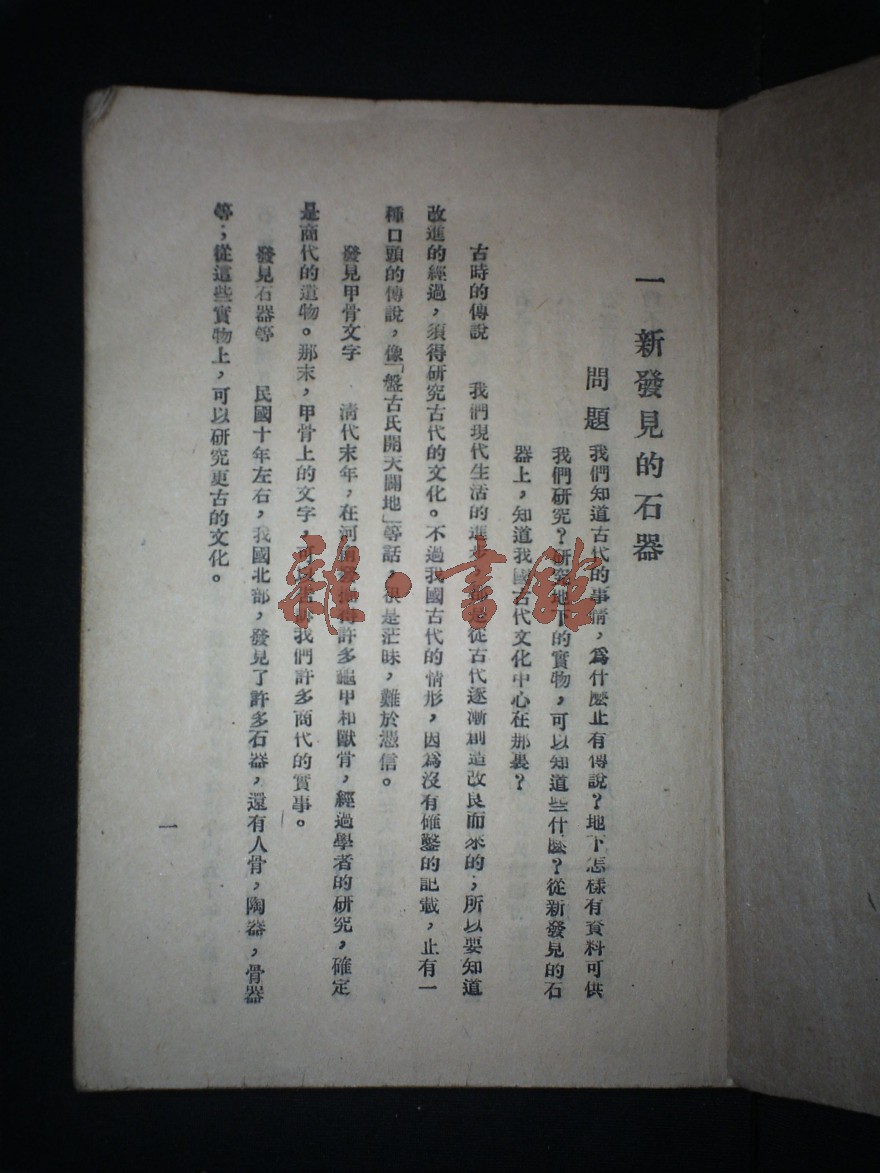 一 新發見的石器
問題 我們知道古代的事情，爲什麽止有傳說？地下怎樣有資料可供
我們研究？研究地下的實物，可以知道些什麽？從新發見的石
器上，知道我國古代文化中心在那裏？
古時的傳說 我們現代生活的進步，都是從古代逐漸創造改良而來的；所以要知道
改進的經過，須得研究古代的文化。不過我國古代的情形，因爲沒有確鑿的記載，止有一
種口頭的傳說，像「盤古氏開天闢地」等話，很是茫昧，難於憑信。
發見甲骨文字 清代末年，在河南 掘得許多龜甲和獸骨，經過學者的研究，確定
是商代的遺物。那末，甲骨上的文字，可以告訴我們許多商代的實事。
發見石器等 民國十年左右，我國北部，發見了許多石器，還有人骨，陶器，骨器
等；從這些實物上，可以研究更古的文化。
一
雜·書館